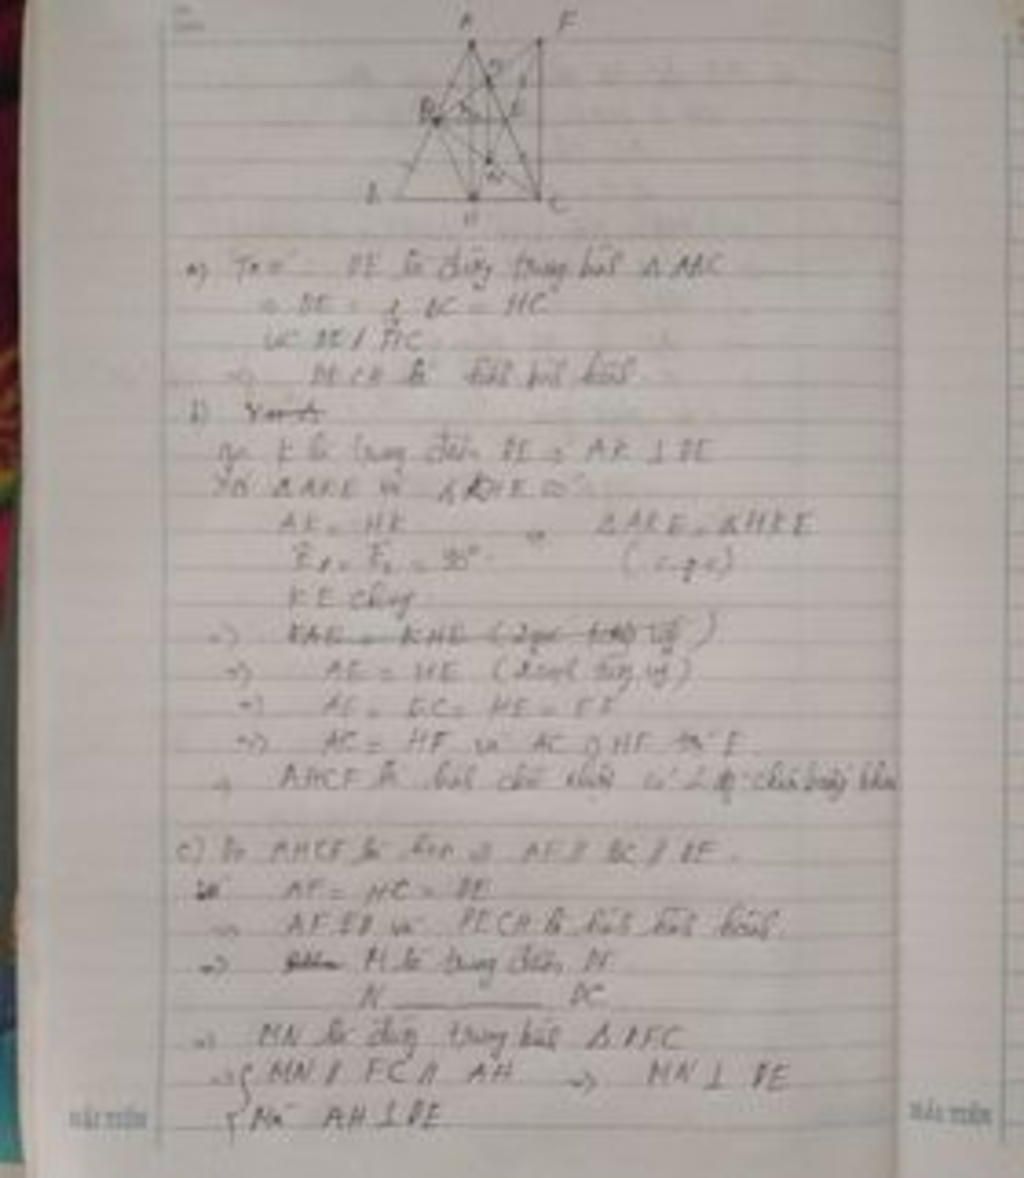 A F
D M
K E
N
B H C
a) Ta có DE là đường trung bình Δ ABC
⇒ DE = 1/2 BC = HC
DE // HC
⇒ DECH là hình bình hành
b)
K là trung điểm DE ⇒ AK ⊥ DE
Xét Δ AKE và Δ KHE có
AK = HK ⇒ Δ AKE = Δ HKE
K1 = K2 = 90° (c-g-c)
KE chung
⇒ KAE = KHE (2 góc tương ứng)
⇒ AE = HE (2 cạnh tương ứng)
⇒ AE = EC = HE = EF
⇒ AC = HF và AC ∩ HF tại E
⇒ AHCF là hình chữ nhật
c) Do AHCF là hcn ⇒ AF // BC // DE
AF = HC = DE
⇒ AFED và DECH là hình bình hành
⇒ M là trung điểm
N ________ DC
⇒ MN là đường trung bình Δ DFC
⇒ { MN // FC // AH ⇒ MN ⊥ DE
Mà AH ⊥ DE
HẢI TIẾN
HẢI TIẾN